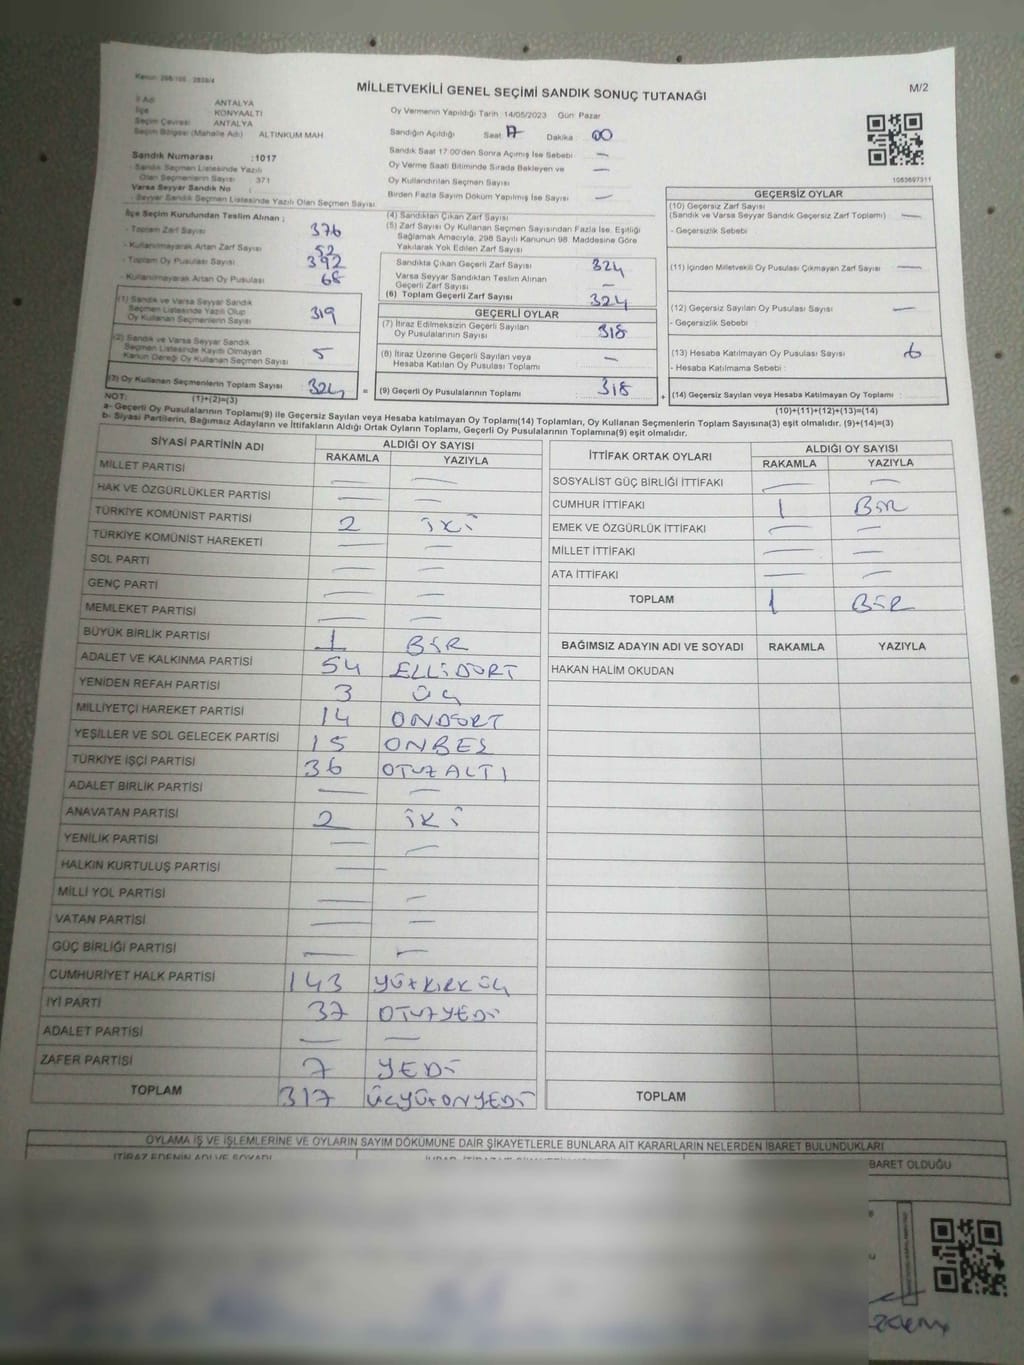 Kanun: 298/105 - 2839/4
MİLLETVEKİLİ GENEL SEÇİMİ SANDIK SONUÇ TUTANAĞI
M/2
İl Adı ANTALYA
İlçe KONYAALTI
Seçim Çevresi ANTALYA
Seçim Bölgesi (Mahalle Adı) ALTINKUM MAH
Oy Vermenin Yapıldığı Tarih 14/05/2023 Gün: Pazar
Sandığın Açıldığı Saat 17 Dakika 00
Sandık Saat 17:00'den Sonra Açılmış İse Sebebi —
Oy Verme Saati Bitiminde Sırada Bekleyen ve
Oy Kullandırılan Seçmen Sayısı —
Birden Fazla Sayım Döküm Yapılmış İse Sayısı —
1053697311
Sandık Numarası :1017
Sandık Seçmen Listesinde Yazılı
Olan Seçmenlerin Sayısı 371
Varsa Seyyar Sandık No :
Seyyar Sandık Seçmen Listesinde Yazılı Olan Seçmen Sayısı
İlçe Seçim Kurulundan Teslim Alınan ;
- Toplam Zarf Sayısı 376
- Kullanılmayarak Artan Zarf Sayısı 52
- Toplam Oy Pusulası Sayısı 392
- Kullanılmayarak Artan Oy Pusulası 68
(1) Sandık ve Varsa Seyyar Sandık
Seçmen Listesinde Yazılı Olup
Oy Kullanan Seçmenlerin Sayısı 319
(2) Sandık ve Varsa Seyyar Sandık
Seçmen Listesinde Kayıtlı Olmayan
Kanun Gereği Oy Kullanan Seçmen Sayısı 5
(3) Oy Kullanan Seçmenlerin Toplam Sayısı 324 =
(4) Sandıktan Çıkan Zarf Sayısı
(5) Zarf Sayısı Oy Kullanan Seçmen Sayısından Fazla İse, Eşitliği
Sağlamak Amacıyla, 298 Sayılı Kanunun 98. Maddesine Göre
Yakılarak Yok Edilen Zarf Sayısı
Sandıkta Çıkan Geçerli Zarf Sayısı 324
Varsa Seyyar Sandıktan Teslim Alınan
Geçerli Zarf Sayısı —
(6) Toplam Geçerli Zarf Sayısı 324
GEÇERLİ OYLAR
(7) İtiraz Edilmeksizin Geçerli Sayılan
Oy Pusulalarının Sayısı 318
(8) İtiraz Üzerine Geçerli Sayılan veya
Hesaba Katılan Oy Pusulası Toplamı —
(9) Geçerli Oy Pusulalarının Toplamı 318 +
GEÇERSİZ OYLAR
(10) Geçersiz Zarf Sayısı
(Sandık ve Varsa Seyyar Sandık Geçersiz Zarf Toplamı) —
- Geçersizlik Sebebi
(11) İçinden Milletvekili Oy Pusulası Çıkmayan Zarf Sayısı —
(12) Geçersiz Sayılan Oy Pusulası Sayısı —
- Geçersizlik Sebebi :
(13) Hesaba Katılmayan Oy Pusulası Sayısı 6
- Hesaba Katılmama Sebebi :
(14) Geçersiz Sayılan veya Hesaba Katılmayan Oy Toplamı :
NOT: (1)+(2)=(3)
(10)+(11)+(12)+(13)=(14)
a- Geçerli Oy Pusulalarının Toplamı(9) ile Geçersiz Sayılan veya Hesaba katılmayan Oy Toplamı(14) Toplamları, Oy Kullanan Seçmenlerin Toplam Sayısına(3) eşit olmalıdır. (9)+(14)=(3)
b- Siyasi Partilerin, Bağımsız Adayların ve İttifakların Aldığı Ortak Oyların Toplamı, Geçerli Oy Pusulalarının Toplamına(9) eşit olmalıdır.
SİYASİ PARTİNİN ADI ALDIĞI OY SAYISI
RAKAMLA YAZIYLA
MİLLET PARTİSİ — —
HAK VE ÖZGÜRLÜKLER PARTİSİ — —
TÜRKİYE KOMÜNİST PARTİSİ 2 İKİ
TÜRKİYE KOMÜNİST HAREKETİ — —
SOL PARTİ — —
GENÇ PARTİ — —
MEMLEKET PARTİSİ — —
BÜYÜK BİRLİK PARTİSİ 1 BİR
ADALET VE KALKINMA PARTİSİ 54 ELLİDÖRT
YENİDEN REFAH PARTİSİ 3 ÜÇ
MİLLİYETÇİ HAREKET PARTİSİ 14 ONDÖRT
YEŞİLLER VE SOL GELECEK PARTİSİ 15 ONBEŞ
TÜRKİYE İŞÇİ PARTİSİ 36 OTUZALTI
ADALET BİRLİK PARTİSİ — —
ANAVATAN PARTİSİ 2 İKİ
YENİLİK PARTİSİ — —
HALKIN KURTULUŞ PARTİSİ —
MİLLİ YOL PARTİSİ — —
VATAN PARTİSİ — —
GÜÇ BİRLİĞİ PARTİSİ — —
CUMHURİYET HALK PARTİSİ 143 YÜZKIRKÜÇ
İYİ PARTİ 37 OTUZYEDİ
ADALET PARTİSİ — —
ZAFER PARTİSİ 7 YEDİ
TOPLAM 317 ÜÇYÜZONYEDİ
İTTİFAK ORTAK OYLARI ALDIĞI OY SAYISI
RAKAMLA YAZIYLA
SOSYALİST GÜÇ BİRLİĞİ İTTİFAKI — —
CUMHUR İTTİFAKI 1 BİR
EMEK VE ÖZGÜRLÜK İTTİFAKI — —
MİLLET İTTİFAKI — —
ATA İTTİFAKI — —
TOPLAM 1 BİR
BAĞIMSIZ ADAYIN ADI VE SOYADI RAKAMLA YAZIYLA
HAKAN HALİM OKUDAN
TOPLAM
OYLAMA İŞ VE İŞLEMLERİNE VE OYLARIN SAYIM DÖKÜMÜNE DAİR ŞİKAYETLERLE BUNLARA AİT KARARLARIN NELERDEN İBARET BULUNDUKLARI
İTİRAZ EDENİN ADI VE SOYADI
BARET OLDUĞU